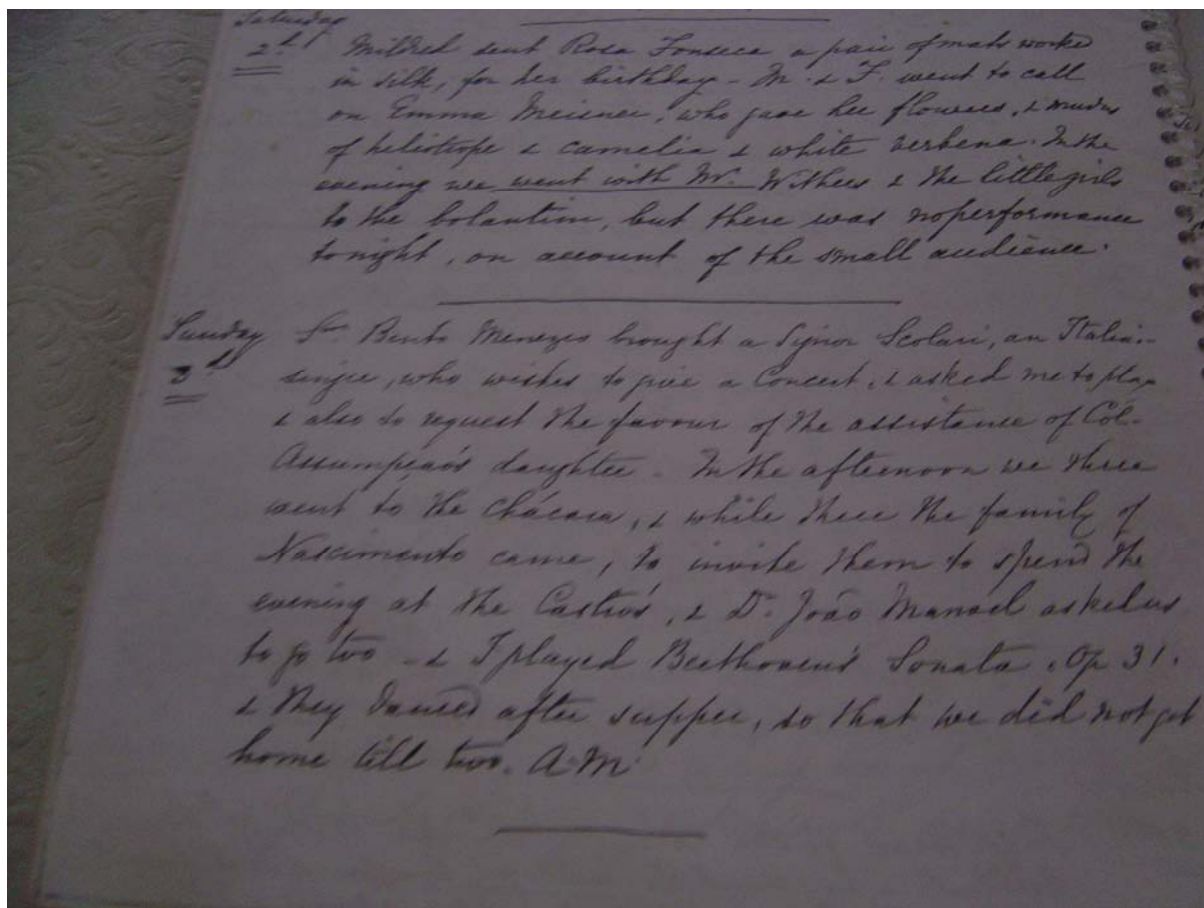 Saturday
2d Mildred sent Rosa Fonseca a pair of mats worked
in silk, for her birthday - M. & F. went to call
on Emma Meisner, who gave her flowers, &
of heliotrope & camelia & white verbena. In the
evening we went with Mr. Withers & the little girls
to the bolantim, but there was no performance
tonight, on account of the small audience.
Sunday Snr. Bento Menezes brought a Signor Scolari, an Italian
3d singer, who wishes to give a Concert, & asked me to play
& also to request the favour of the assistance of Col.
Assumpçao's daughter - In the afternoon we three
went to the Chácara, & while there the family of
Nascimento came, to invite them to spend the
evening at the Castro's, & Dr. João Manoel asked us
to go too - & I played Beethoven's Sonata. Op 31.
& they danced after supper, so that we did not get
home till two. A.M.